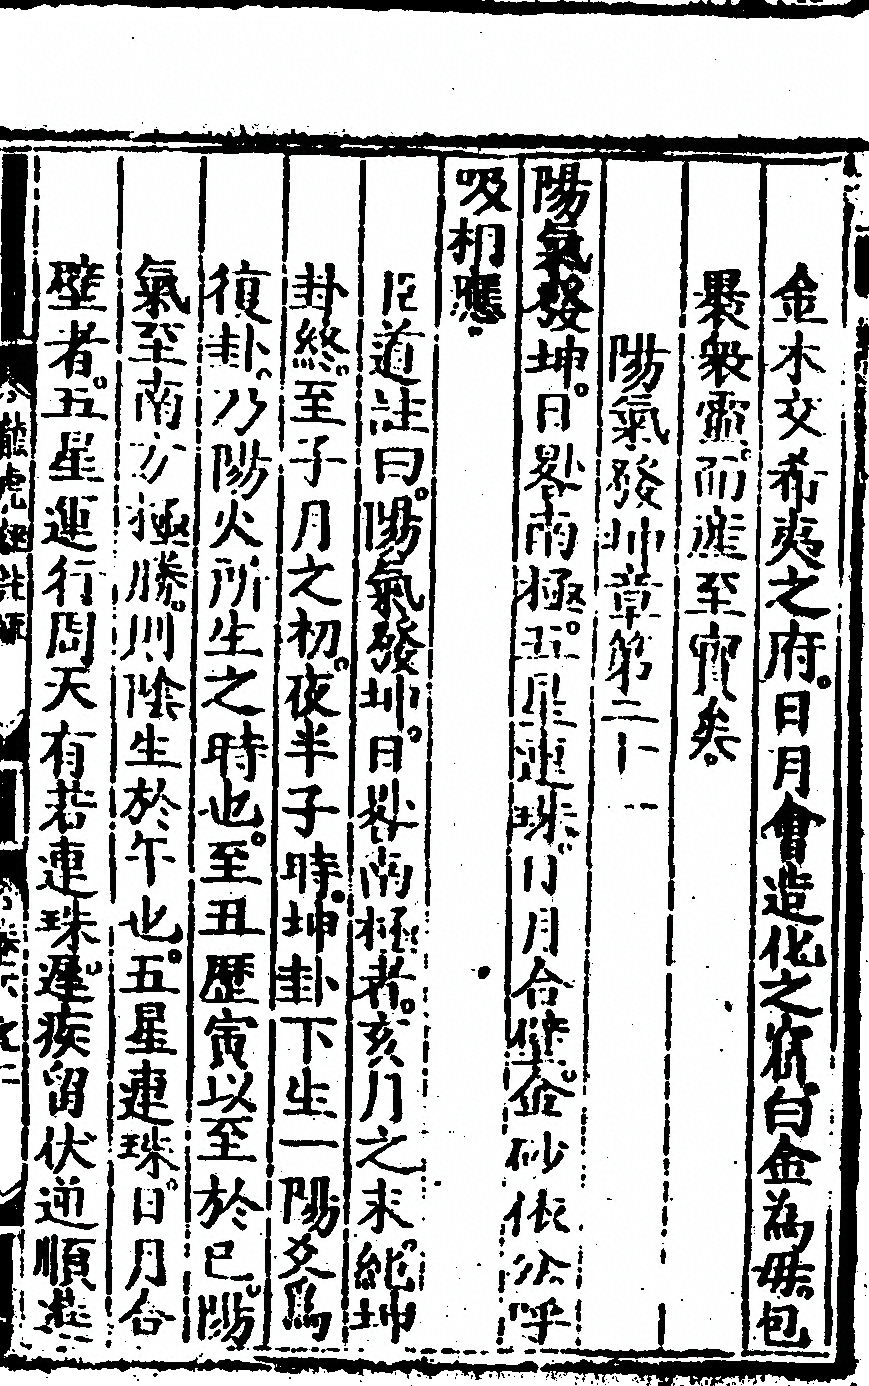 金木交希夷之府日月會造化之竅白金為母包
裹衆靈而産至寳矣
陽氣發坤章第二十
陽氣發坤日晷南極五星連珠日月合壁金砂依公呼
吸相應
臣道註曰陽氣發坤日晷南極者亥月之末純坤
卦終至子月之初夜半子時坤卦下生一陽爻爲
復卦乃陽火所生之時也至丑歷寅以至於巳陽
氣至南方極勝則陰生於午也五星連珠日月合
壁者五星運行周天有若連珠遲疾留伏逆順
龍虎經註疏